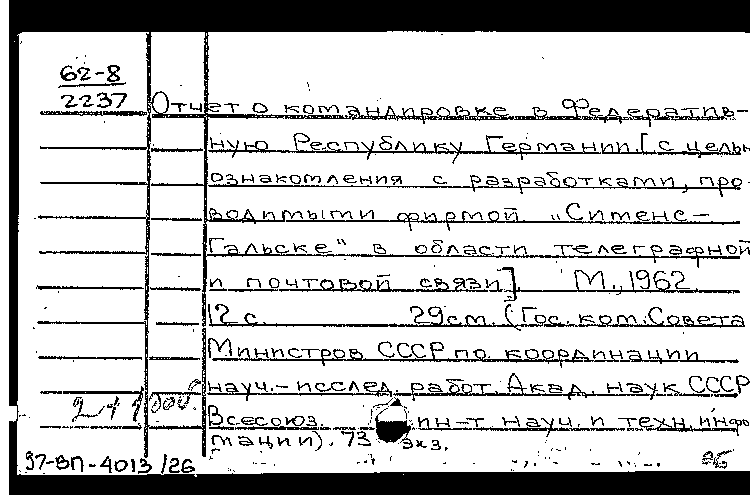 62-8
2237
Отчет о командировке в Федератив-
ную Республику Германии. [с целью
ознакомления с разработками, про-
водимыми фирмой „Сименс-
Гальске" в области телеграфной
и почтовой связи] М., 1962
12 с. 29см. (Гос. ком. Совета
Министров СССР по координации
науч.-исслед. работ. Акад. наук СССР
Всесоюз. ин-т науч. и техн. инфор
мации). 73 экз.
97-ВП-4013/26